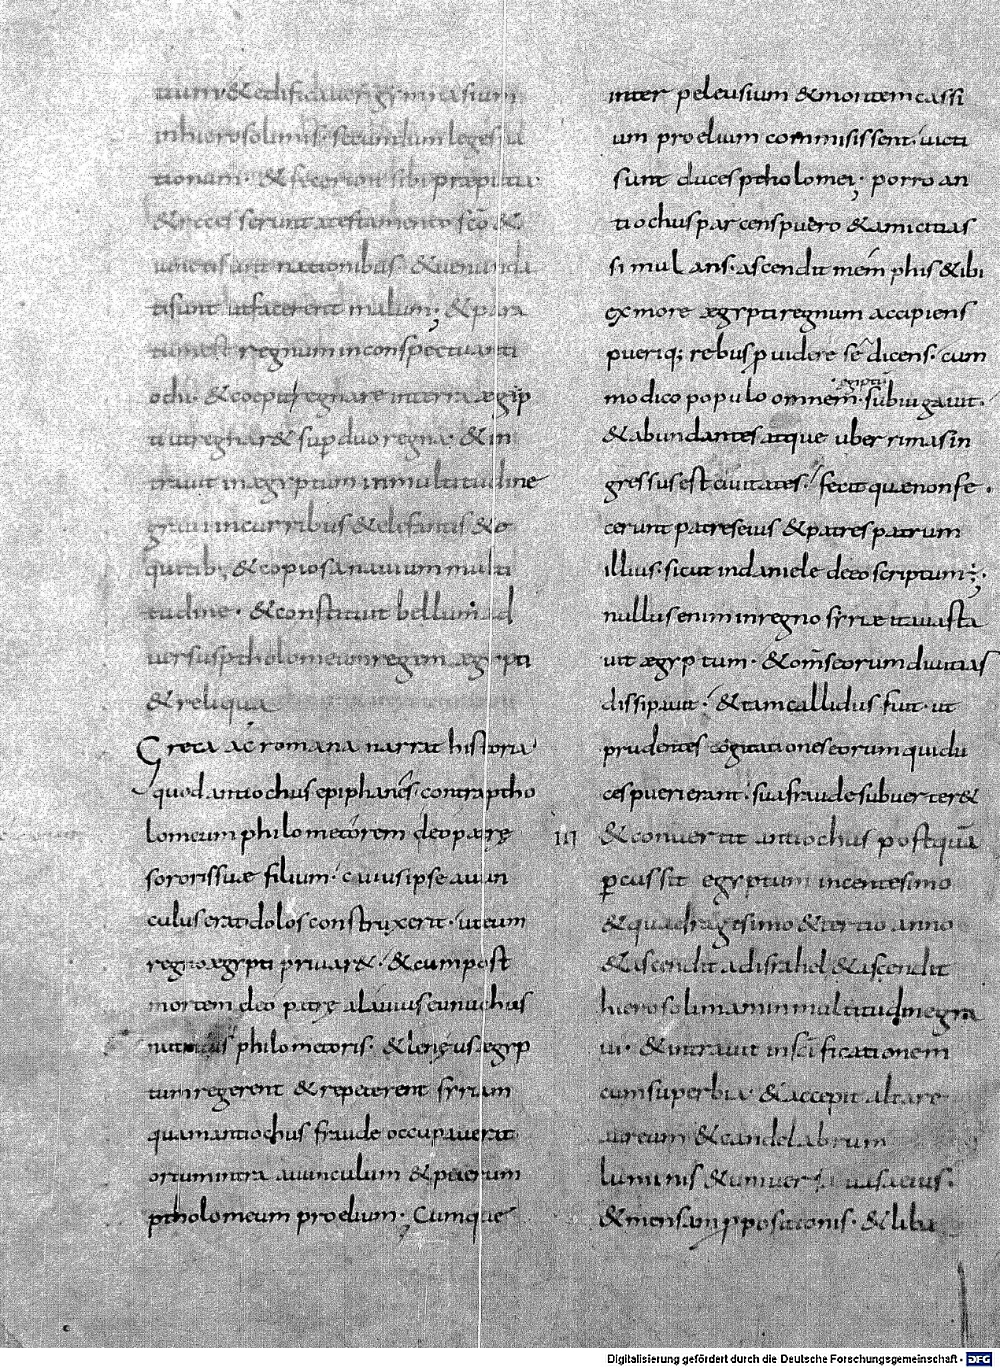 tium & edificaver gymnasium
in hierosolimis secundum leges
tionum · & fecerunt sibi praeputia
& recesserunt atestamento sc̄o &
nationibus · & uenunda
ti sunt utfacerent malum; & para
tum est regnum inconspectu anti
ochi · & coepit regnare interra aegip
ti utregnar& sup̄ duo regna · & in
trauit inaegyptum inmultitudine
graui incurribus & elefantis & e
quitib; & copiosa nauium multi
tudine · & constituit bellum ad
uersus ptholomeum regem aegypti
& reliqua
Greca ac romana narrat historia
quod antiochus epiphanes contra ptho
lomeum philometorem cleopatrę
sororis suae filium · cuius ipse auun
culus erat dolos construxerit · ut eum
regno aegypti priuar& · & cum post
mortem cleopatrę eunuchus
philometoris · & aegyp
tum regerent & repeterent syriam
quam antiochus fraude occupauerat
ortum intra auunculum & puerum
ptholomeum proelium · Cumque
inter peleusium & montem cassi
um proelium commisissent · uicti
sunt duces ptholomei; porro an
tiochus parcens puero & amicitias
simulans · ascendit memphis & ibi
ex more aegypti regnum accipiens
pueriq; rebus p uidere sē dicens · cum
modico populo omnem · egiptū · subiugauit ·
& abundantes atque uberrimas in
gressus est ciuitates · fecit quae non fe
cerunt patres eius & patres patrum
illius · sicut in daniele de eo scriptum;
nullus enim inregno syriae ita uasta
uit aegyptum · & om̄s eorum diuitias
dissipauit · & tam callidus fuit · ut
prudentes cogitationes eorum qui du
ces pueri erant · sua fraude subuerter&
III & conuertit antiochus postquā
p̱cussit egyptum incentesimo
& quadragesimo & tertio anno
& ascendit adisrahel & ascendit
hierosolimam inmultitudine gra
ui · & intrauit insc̄ificationem
cum superbia · & accepit altare
aureum & candelabrum
luminis & uniuersa uasa eius ·
& mensam p̱positionis · & liba